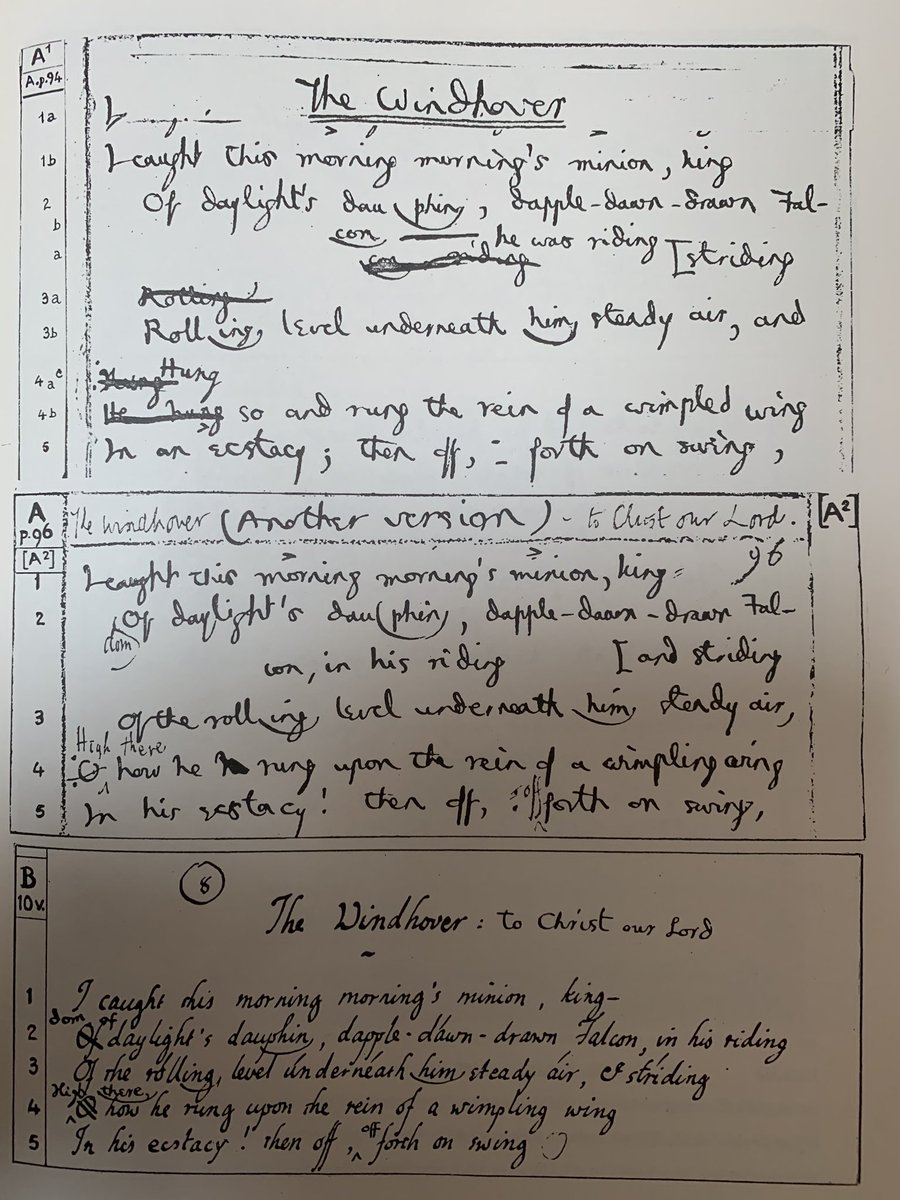 A¹
A.p.94
The Windhover
1a I
1b I caught this morning morning's minion, king
2 Of daylight's dauphin, dapple-dawn-drawn Fal-
b con, he was riding
a con riding [striding
3a Rolling
3b Rolling level underneath him steady air, and
4a Hung
4b He hung so and rung the rein of a wimpled wing
5 In an ecstacy; then off, forth on swing,
A p.96 The Windhover (Another version) - to Christ our Lord. [A²]
[A²] 96
1 I caught this morning morning's minion, king=
2 Of daylight's dauphin, dapple-dawn-drawn Fal-
dom
con, in his riding [and striding
3 Of the rolling level underneath him steady air,
High there
4 O how he rung upon the rein of a wimpling wing
5 In his ecstacy! then off, off forth on swing,
B
10v.
8
The Windhover: to Christ our Lord
1 I caught this morning morning's minion, king-
dom of
2 Of daylight's dauphin, dapple-dáwn-drawn Falcon, in his riding
3 Of the rolling level únderneath him steady áir, & striding
High there
4 O how he rung upon the rein of a wimpling wing
5 In his ecstacy! then off, off forth on swing